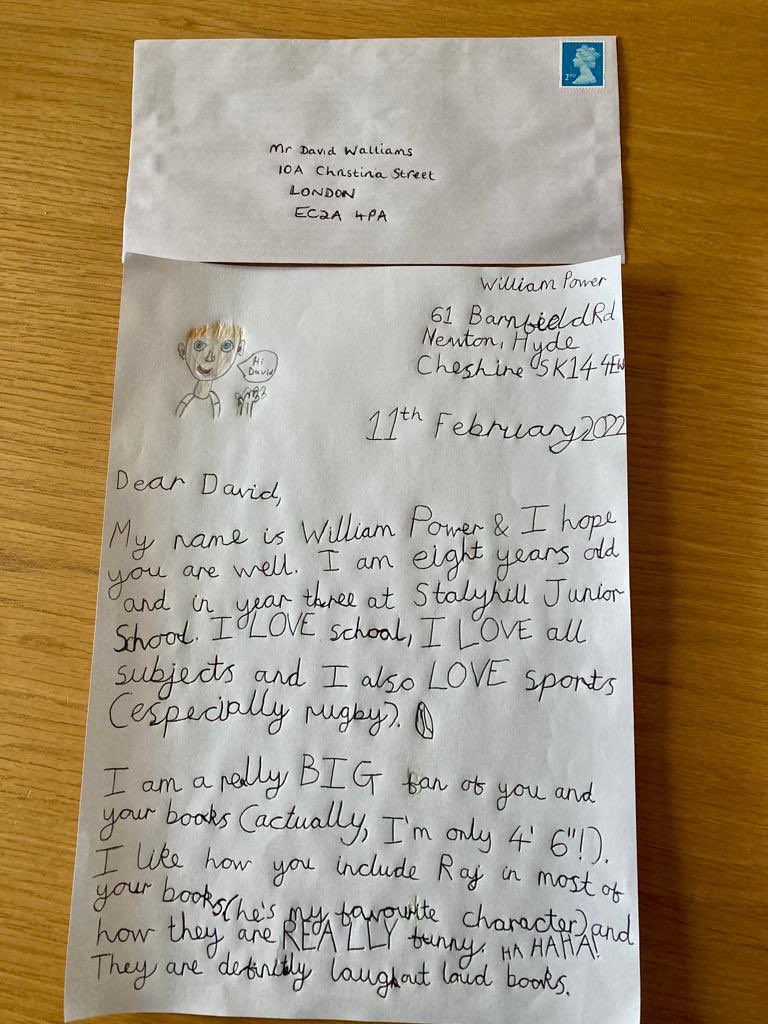 2ND
Mr David Walliams
10A Christina Street
LONDON
EC2A 4PA
William Power
61 Barnfield Rd
Newton, Hyde
Cheshire SK14 4EW
Hi
David
11th February 2022
Dear David,
My name is William Power & I hope
you are well. I am eight years old
and in year three at Stalyhill Junior
School. I LOVE school, I LOVE all
subjects and I also LOVE sports
(especially rugby).
I am a really BIG fan of you and
your books (actually, I'm only 4' 6"!).
I like how you include Raj in most of
your books (he's my favourite character) and
how they are REALLY funny. HA HAHA!
They are definitly laugh out loud books.